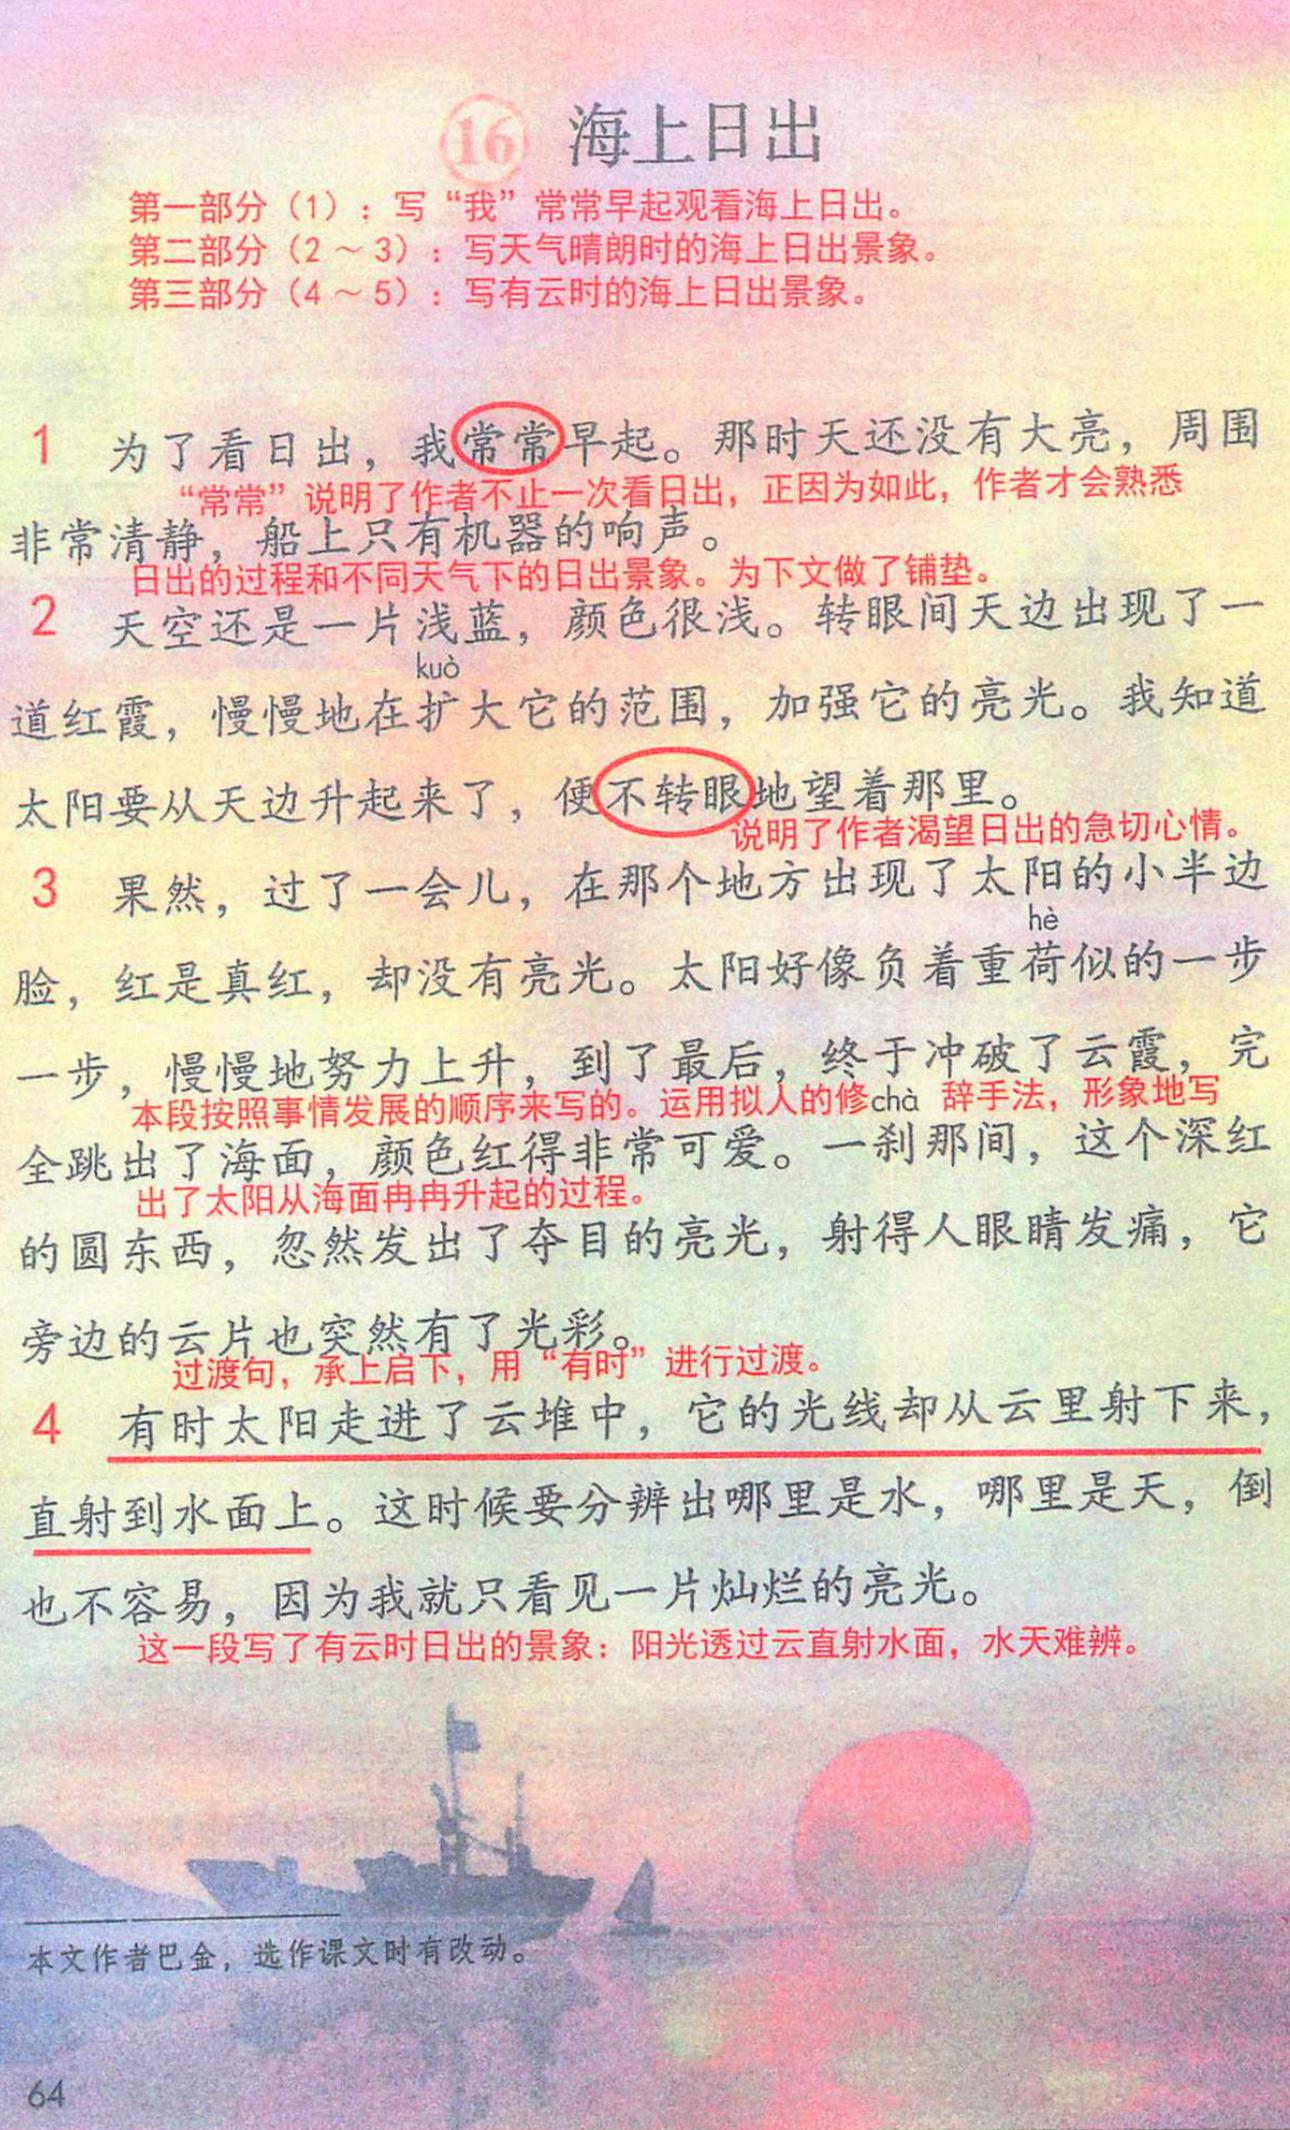 16 海上日出
第一部分（1）：写“我”常常早起观看海上日出。
第二部分（2～3）：写天气晴朗时的海上日出景象。
第三部分（4～5）：写有云时的海上日出景象。
1 为了看日出，我常常早起。那时天还没有大亮，周围
“常常”说明了作者不止一次看日出，正因为如此，作者才会熟悉
非常清静，船上只有机器的响声。
日出的过程和不同天气下的日出景象。为下文做了铺垫。
2 天空还是一片浅蓝，颜色很浅。转眼间天边出现了一
kuò
道红霞，慢慢地在扩大它的范围，加强它的亮光。我知道
太阳要从天边升起来了，便不转眼地望着那里。
说明了作者渴望日出的急切心情。
3 果然，过了一会儿，在那个地方出现了太阳的小半边
hè
脸，红是真红，却没有亮光。太阳好像负着重荷似的一步
一步，慢慢地努力上升，到了最后，终于冲破了云霞，完
本段按照事情发展的顺序来写的。运用拟人的修chà 辞手法，形象地写
全跳出了海面，颜色红得非常可爱。一刹那间，这个深红
出了太阳从海面冉冉升起的过程。
的圆东西，忽然发出了夺目的亮光，射得人眼睛发痛，它
旁边的云片也突然有了光彩。
过渡句，承上启下，用“有时”进行过渡。
4 有时太阳走进了云堆中，它的光线却从云里射下来，
直射到水面上。这时候要分辨出哪里是水，哪里是天，倒
也不容易，因为我就只看见一片灿烂的亮光。
这一段写了有云时日出的景象：阳光透过云直射水面，水天难辨。
本文作者巴金，选作课文时有改动。
64